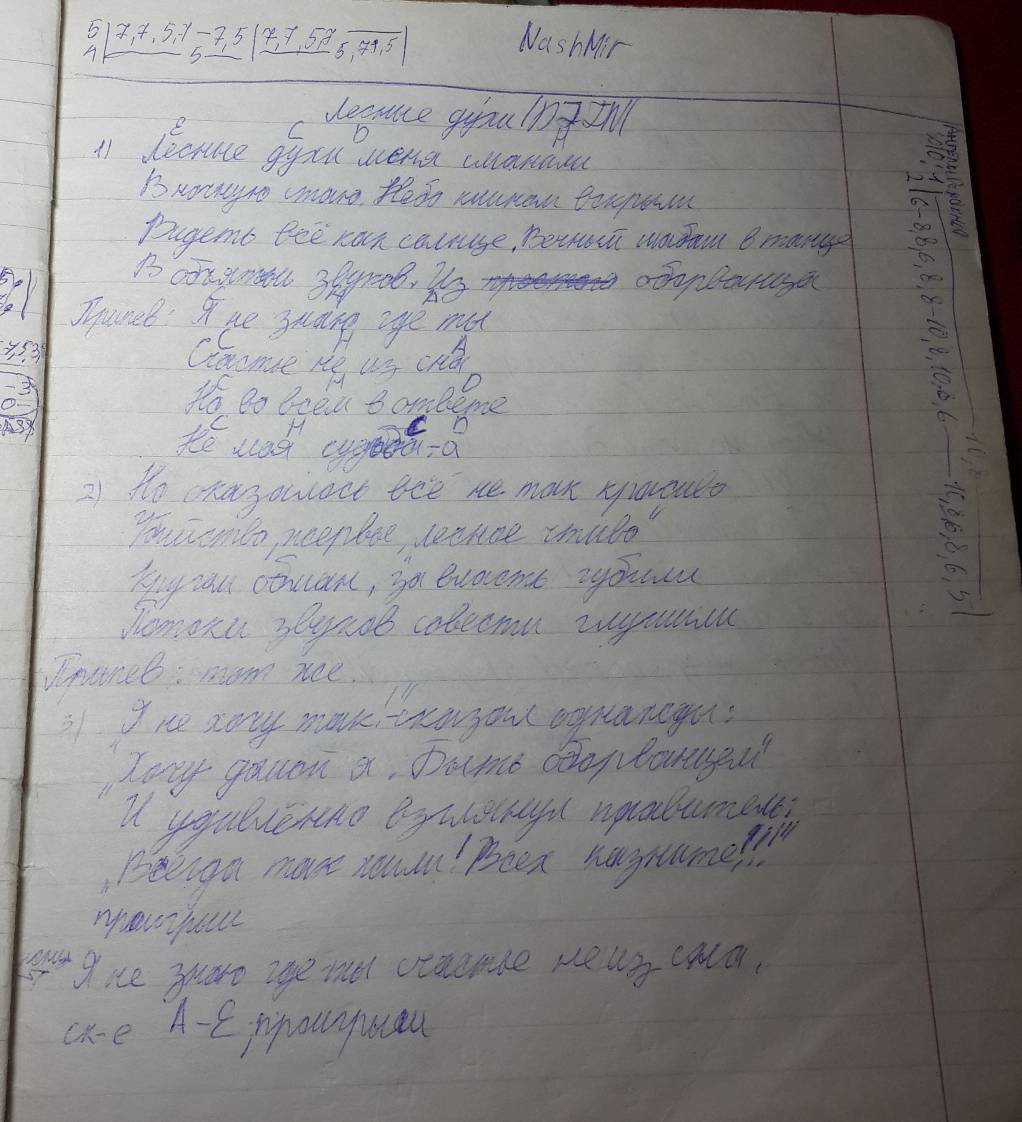 5 | 7,7,5,7 – 7,5 | 7,7,5,7 5,7,5 |
4 5
NashMir
Лесные духи (
E C D H
1) Лесные духи меня сманали
В ночную стаю. Небо клином вскрыли
Видеть всё как солнце, Вечный шабаш в танце
В объятьи звуков. Из простого оборванца
H A
Припев: Я не знаю где ты
C H A
Счастье не из сна
C H D
Но во всём в ответе
C H C D
Не моя судьба-а
2) Но оказалось всё не так красиво
Убийство, жервье, „лесное чтиво"
Кругом обман, за власть губили
Потоки звуков совести глушили
Припев: тот же.
3) „Я не хочу так!"-сказал однажды:
„Хочу домой я. Быть оборванцем"
И удивлённо взглянул правитель:
„Всегда так жили! Всех казните!!!"
проигрыш
Я не знаю где ты счастье не из сна.
ск-е A-E, проигрыш